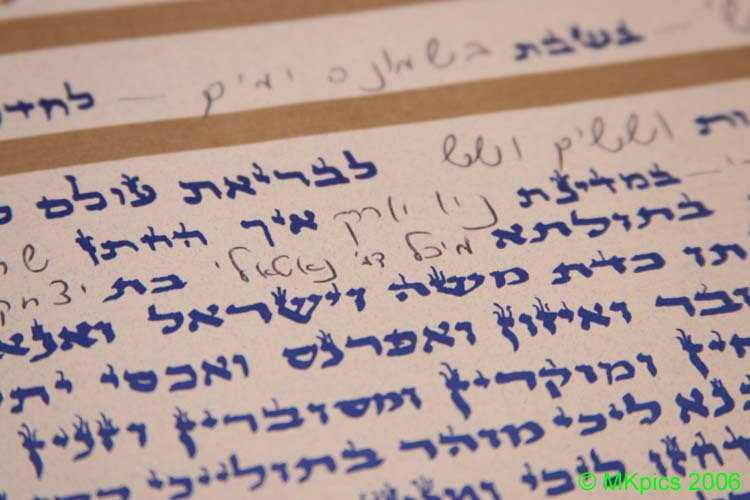 בשבת — בשמונה ימים —
וששים ושש לבריאת עולם
במדינת ניו יורק איך החתן
בתולתא מיכל בת יצחק
כדת משה וישראל ואנא
ואיזון ואפרנס ואכסי
ומוקרין ומסוברין וזנין
ליכי מוהר בתולייכי
ליכי
© MKpics 2006